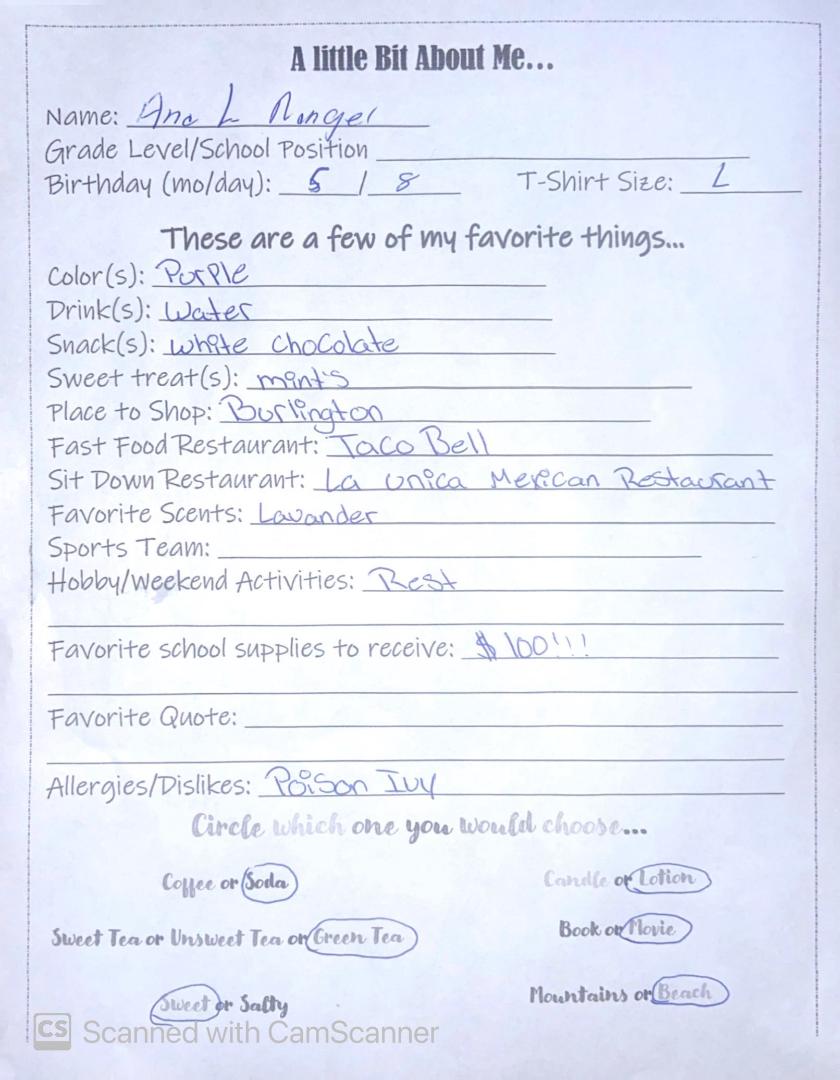 A little Bit About Me...
Name: Ana L Rangel
Grade Level/School Position
Birthday (mo/day): 5 / 8 T-Shirt Size: L
These are a few of my favorite things...
Color(s): Purple
Drink(s): Water
Snack(s): white chocolate
Sweet treat(s): mint's
Place to Shop: Burlington
Fast Food Restaurant: Taco Bell
Sit Down Restaurant: La Unica Mexican Restaurant
Favorite Scents: Lavander
Sports Team:
Hobby/Weekend Activities: Rest
Favorite school supplies to receive: $100!!!
Favorite Quote:
Allergies/Dislikes: Poison Ivy
Circle which one you would choose...
Coffee or Soda Candle or Lotion
Sweet Tea or Unsweet Tea or Green Tea Book or Movie
Sweet or Salty Mountains or Beach
CS Scanned with CamScanner